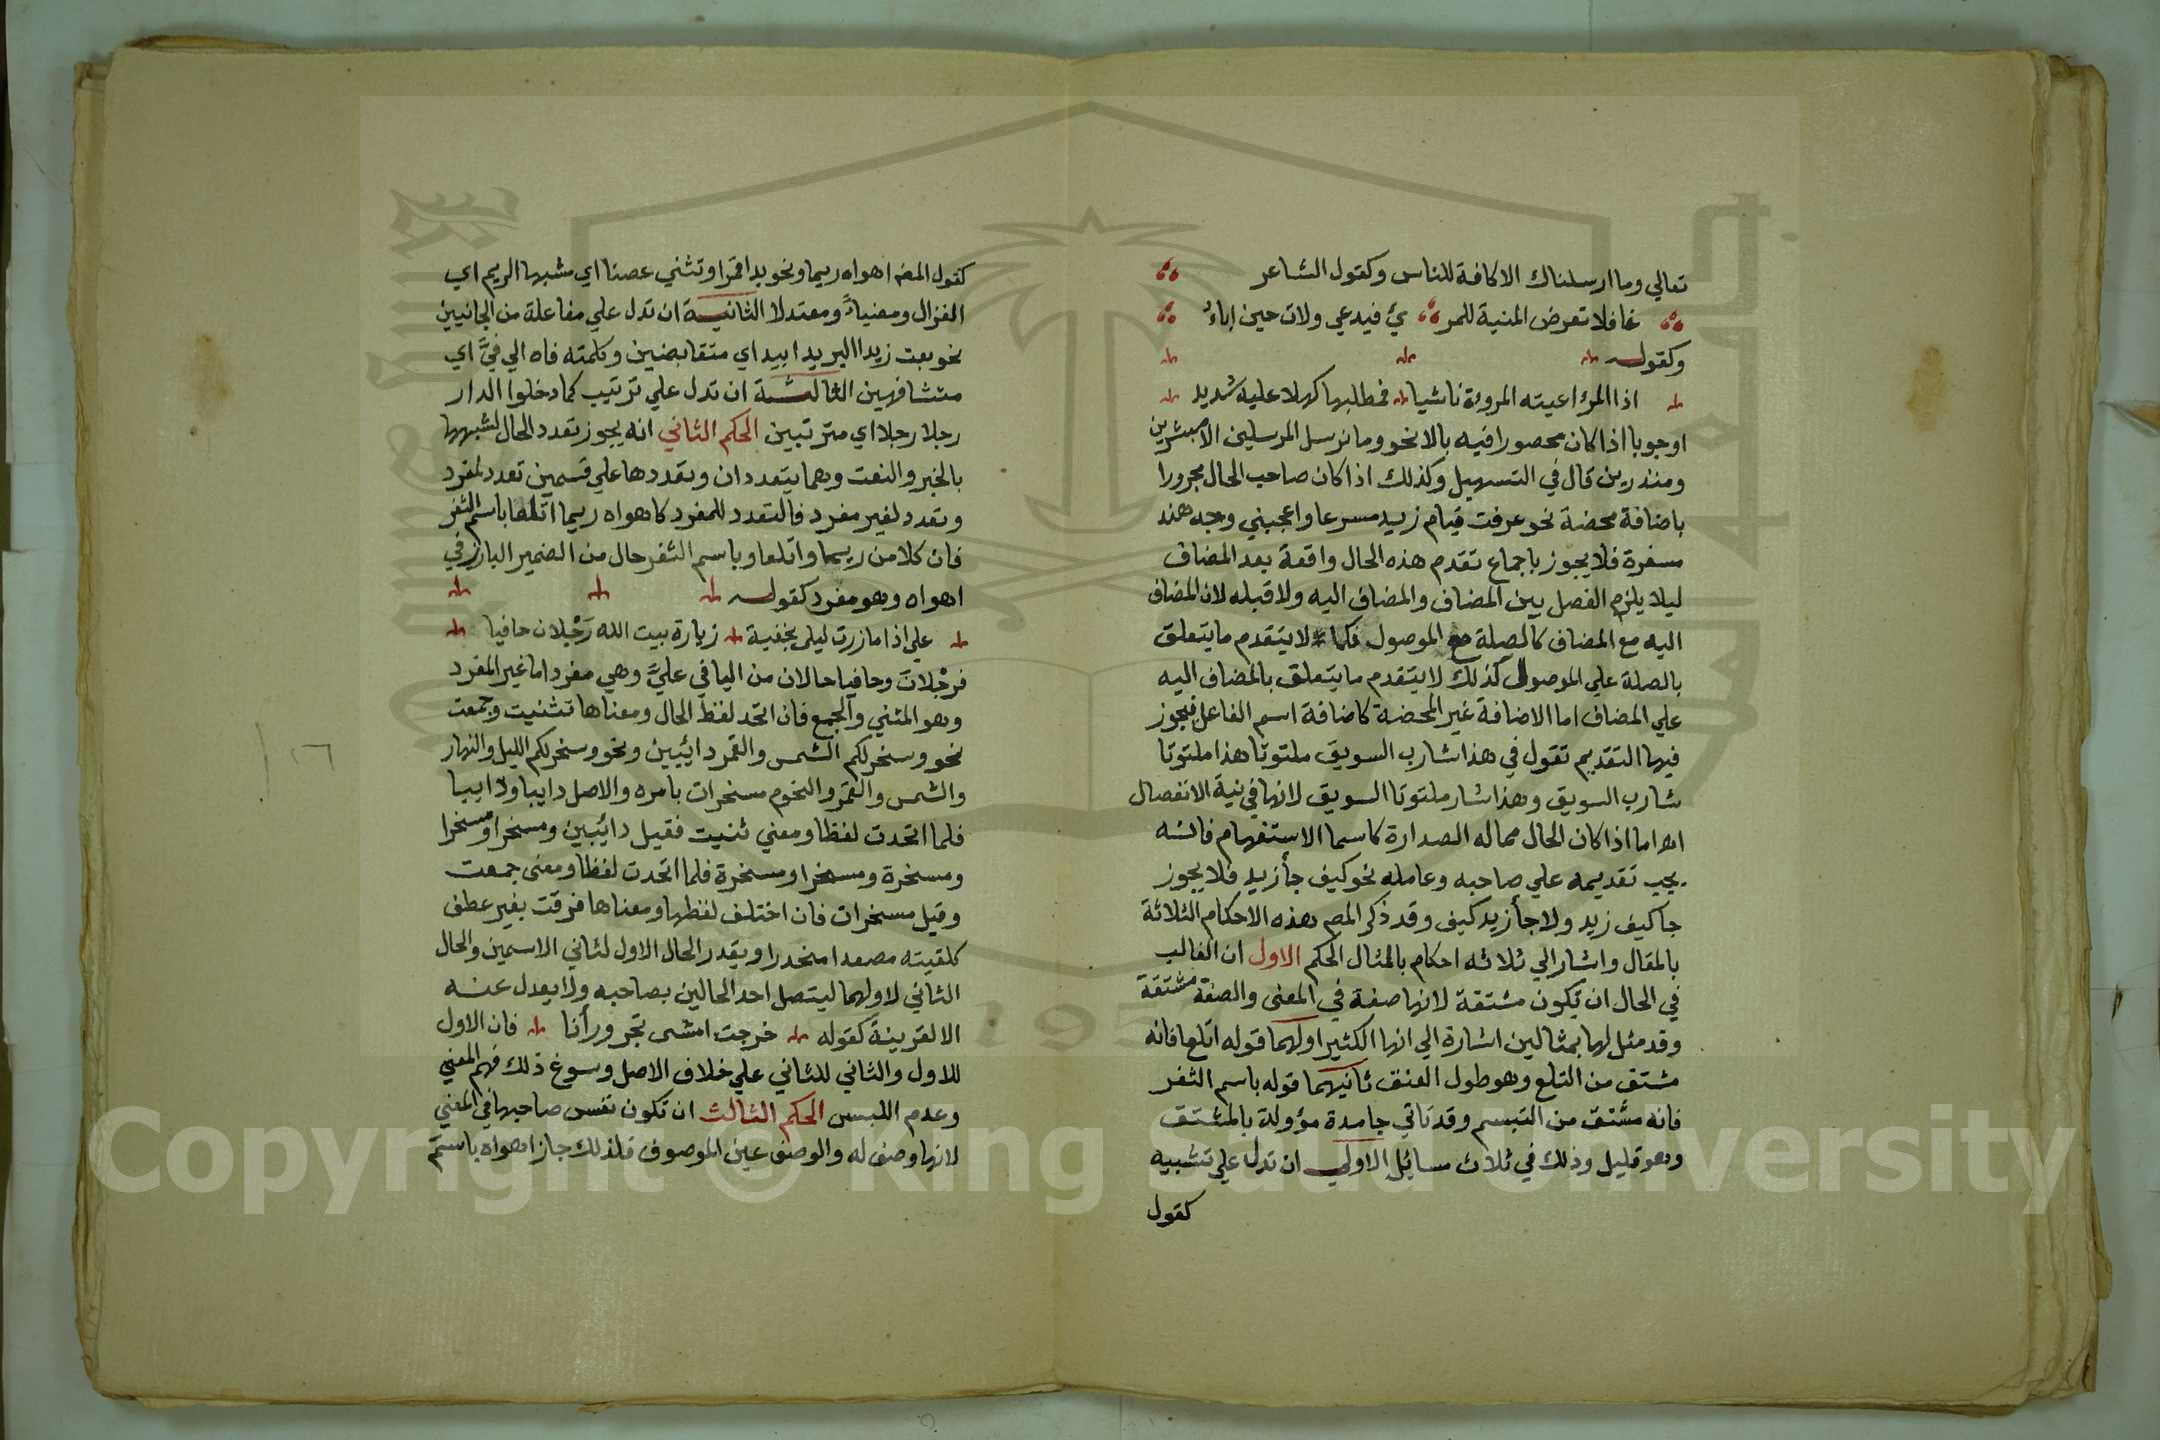 تعالي وما ارسلناك الا كافة للناس وكقول الشاعر
غافلا تعرض المنية للمر ئ فيدعي ولات حين اباءُ
وكقول
اذا المرء اعيته المروءة ناشيا فمطلبها كهلا عليه شديد
او جوبا اذا كان محصورا فيه بالا نحو وما نرسل المرسلين الا مبشرين
ومنذرين قال في التسهيل وكذلك اذا كان صاحب الحال مجرورا
باضافة محضة نحو عرفت قيام زيد مسرعا واعجبني وجه هند
مسفرة فلا يجوز باجماع تقدم هذه الحال واقعة بعد المضاف
ليلا يلزم الفصل بين المضاف والمضاف اليه ولا قبله لان المضاف
اليه مع المضاف كالصلة مع الموصول فكما لا يتقدم ما يتعلق
بالصلة علي الموصول كذلك لا يتقدم ما يتعلق بالمضاف اليه
علي المضاف اما الاضافة غير المحضة كاضافة اسم الفاعل فيجوز
فيها التقديم تقول في هذا شارب السويق ملتوتا هذا ملتوتا
شارب السويق وهذا شار ملتوتا السويق لانها في نية الانفصال
اه اما اذا كان الحال مما له الصدارة كاسما الاستفهام فانه
يجب تقديمه علي صاحبه وعامله نحو كيف جأ زيد فلا يجوز
جا كيف زيد ولا جأ زيد كيف وقد ذكر المص هذه الاحكام الثلاثة
بالمقال واشار الي ثلاثه احكام بالمثال الحكم الاول ان الغالب
في الحال ان تكون مشتقة لانها صفة في المعنى والصفة مشتقة
وقد مثل لها بمثالين اشارة الي انها الكثير اولهما قوله اتلعا فانه
مشتق من التلع وهو طول العنق ثانيهما قوله باسم الثغر
فانه مشتق من التبسم وقد تاتي جامدة مؤولة بالمشتق
وهو قليل وذلك في ثلاث مسائل الاولي ان تدل علي تشبيه
كقول
كقول المص اهواه ريما ونحو بدا قمرا وتثني عصنا اي مشبها الريم اي
الغزال ومضيأً ومعتدلا الثانية ان تدل علي مفاعلة من الجانبين
نحو بعت زيدا البر يدا بيد اي متقابضين وكلمته فاه الي فيَّ اي
متشافهين الثالثة ان تدل علي ترتيب كما دخلوا الدار
رجلا رجلا اي مترتبين الحكم الثاني انه يجوز تعدد الحال لشبهها
بالخبر والنعت وهما يتعددان وتعددها علي قسمين تعدد لمفرد
وتعدد لغير مفرد فالتعدد للمفرد كاهواه ريما اتلعا باسم الثغر
فان كلا من ريما واتلعا وباسم الثغر حال من الضمير البارز في
اهواه وهو مفرد كقول
علي اذا ما زرت ليلى بخفية زيارة بيت الله رَجْلان حافيا
فرجْلانَ وحافيا حالان من اليا في عليَّ وهي مفرد اما غير المفرد
وهو المثني والجمع فان اتحد لفظ الحال ومعناها تثنيت وجمعت
نحو وسخر لكم الشمس والقمر دائبين ونحو وسخر لكم الليل والنهار
والشمس والقمر والنجوم مسخرات بامره والاصل دايبا ودايبا
فلما اتحدت لفظا ومعني ثنيت فقيل دائبين ومسخرا ومسخرا
ومسخرة ومسخرا ومسخرة فلما اتحدت لفظا ومعنى جمعت
وقيل مسخرات فان اختلف لفظها ومعناها فرقت بغير عطف
كلقيته مصعدا منحدرا ويقدر الحال الاول لثاني الاسمين والحال
الثاني لاولهما ليتصل احد الحالين بصاحبه ولا يعدل عنه
الا لقرينة كقوله خرجت امشى تجر ورأنا فان الاول
للاول والثاني للثاني علي خلاف الاصل وسوغ ذلك فهم المعني
وعدم اللبس الحكم الثالث ان تكون نفس صاحبها في المعني
لانها وصف له والوصف عين الموصوف فلذلك جاز اهواه باسم
١٢٦
Copyright © King Saud University
1957